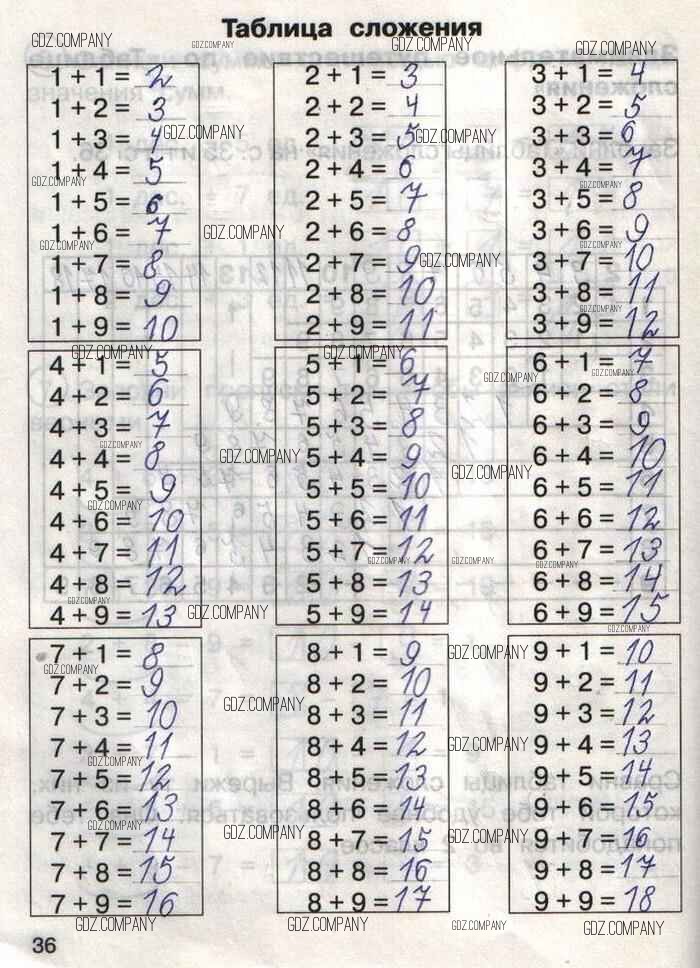 Таблица сложения
1 + 1 = 2
1 + 2 = 3
1 + 3 = 4
1 + 4 = 5
1 + 5 = 6
1 + 6 = 7
1 + 7 = 8
1 + 8 = 9
1 + 9 = 10
2 + 1 = 3
2 + 2 = 4
2 + 3 = 5
2 + 4 = 6
2 + 5 = 7
2 + 6 = 8
2 + 7 = 9
2 + 8 = 10
2 + 9 = 11
3 + 1 = 4
3 + 2 = 5
3 + 3 = 6
3 + 4 = 7
3 + 5 = 8
3 + 6 = 9
3 + 7 = 10
3 + 8 = 11
3 + 9 = 12
4 + 1 = 5
4 + 2 = 6
4 + 3 = 7
4 + 4 = 8
4 + 5 = 9
4 + 6 = 10
4 + 7 = 11
4 + 8 = 12
4 + 9 = 13
5 + 1 = 6
5 + 2 = 7
5 + 3 = 8
5 + 4 = 9
5 + 5 = 10
5 + 6 = 11
5 + 7 = 12
5 + 8 = 13
5 + 9 = 14
6 + 1 = 7
6 + 2 = 8
6 + 3 = 9
6 + 4 = 10
6 + 5 = 11
6 + 6 = 12
6 + 7 = 13
6 + 8 = 14
6 + 9 = 15
7 + 1 = 8
7 + 2 = 9
7 + 3 = 10
7 + 4 = 11
7 + 5 = 12
7 + 6 = 13
7 + 7 = 14
7 + 8 = 15
7 + 9 = 16
8 + 1 = 9
8 + 2 = 10
8 + 3 = 11
8 + 4 = 12
8 + 5 = 13
8 + 6 = 14
8 + 7 = 15
8 + 8 = 16
8 + 9 = 17
9 + 1 = 10
9 + 2 = 11
9 + 3 = 12
9 + 4 = 13
9 + 5 = 14
9 + 6 = 15
9 + 7 = 16
9 + 8 = 17
9 + 9 = 18
36
GDZ.COMPANY